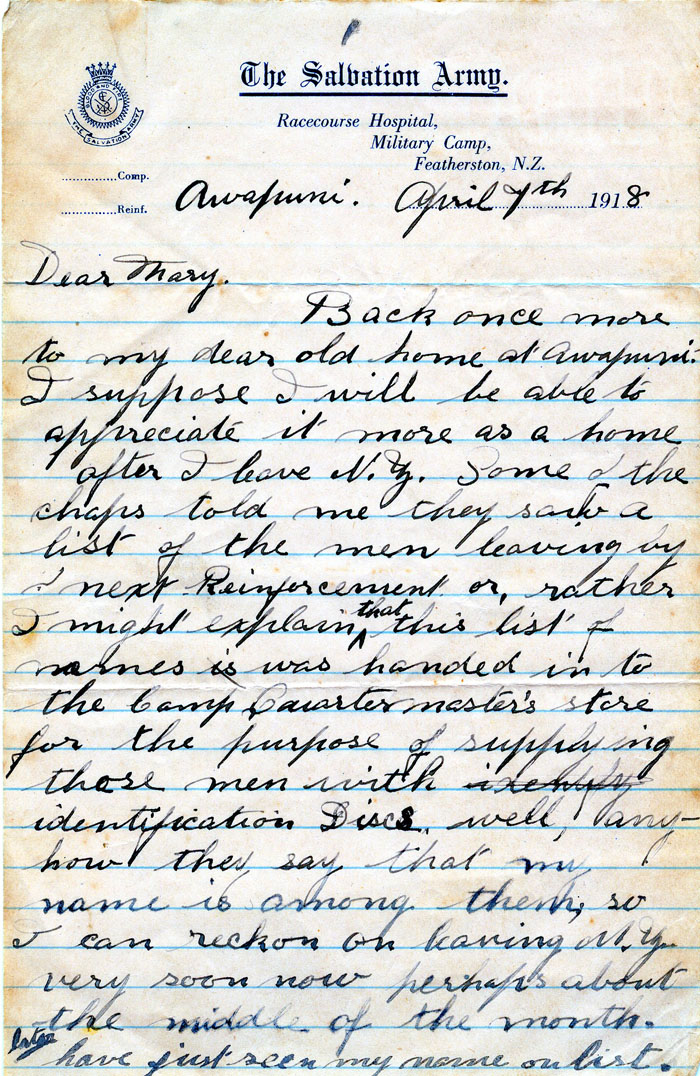 The Salvation Army.
BLOOD AND FIRE
THE SALVATION ARMY
Racecourse Hospital,
Military Camp,
Featherston, N.Z.
Comp.
Reinf.
Awapuni. April 7th 1918
Dear Mary.
Back once more
to my dear old home at Awapuni.
I suppose I will be able to
appreciate it more as a home
after I leave N.Z. Some of the
chaps told me they saw a
list of the men leaving by
next Reinforcement or, rather
I might explain that this list of
names is was handed in to
the Camp Quartermaster's store
for the purpose of supplying
those men with
identification Discs. well, any-
how they say that my
name is among them, so
I can reckon on leaving N.Z.
very soon now perhaps about
the middle of the month.
later have just seen my name on list.